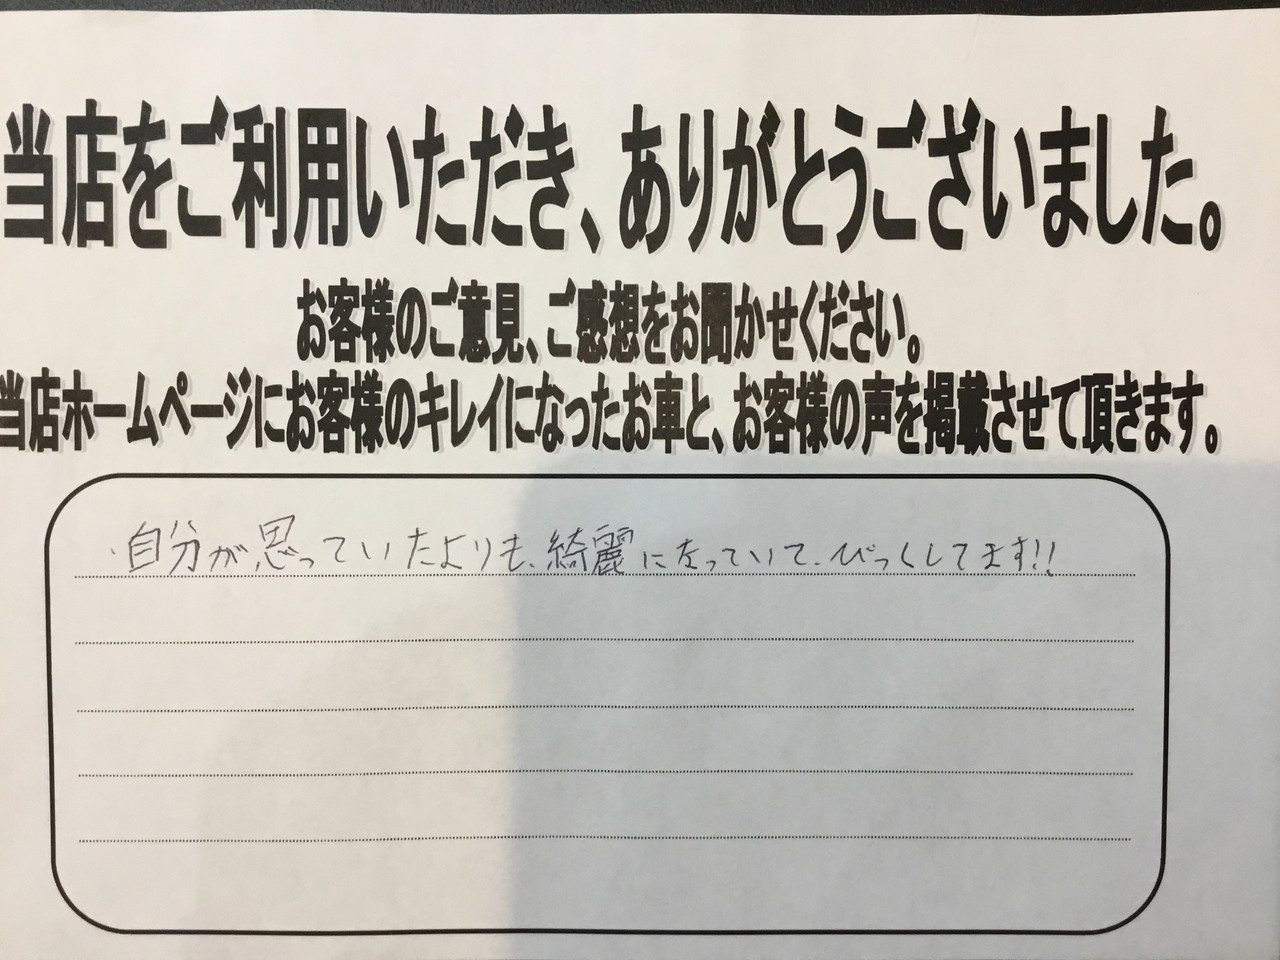 当店をご利用いただき、ありがとうございました。
お客様のご意見、ご感想をお聞かせください。
当店ホームページにお客様のキレイになったお車と、お客様の声を掲載させて頂きます。
・自分が思っていたよりも、綺麗になっていて、びっくしてます!!